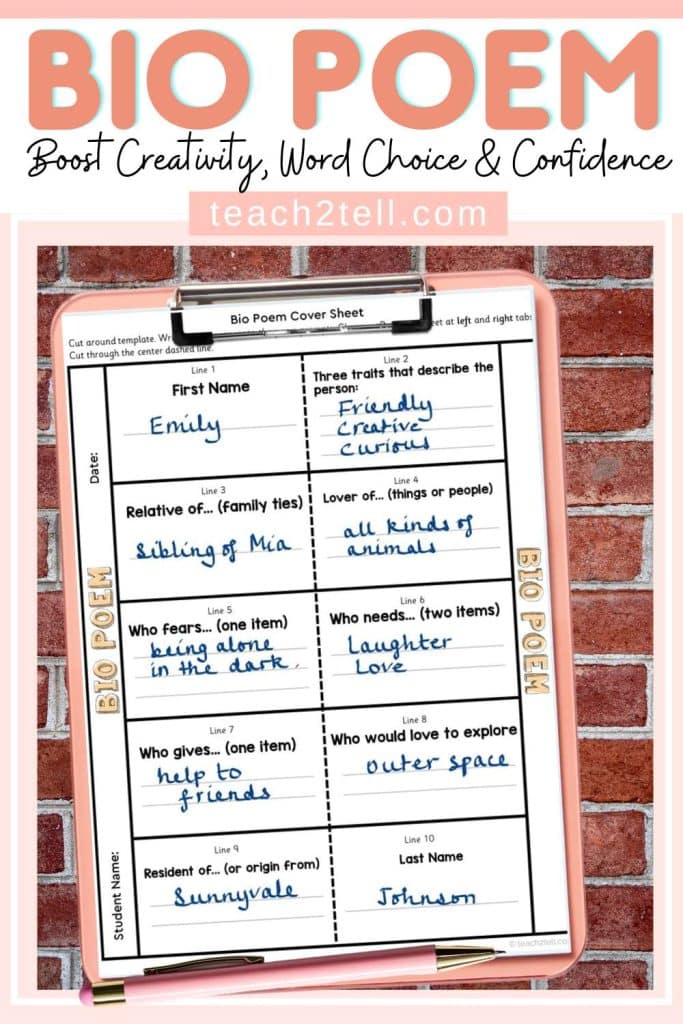 BIO POEM
Boost Creativity, Word Choice & Confidence
teach2tell.com
Bio Poem Cover Sheet
Cut around template. Wr
et at left and right tabs
Cut through the center dashed line.
Date:
BIO POEM
Student Name:
Line 1
First Name
Emily
Line 2
Three traits that describe the
person:
Friendly
Creative
Curious
Line 3
Relative of... (family ties)
Sibling of Mia
Line 4
Lover of... (things or people)
all kinds of
animals
Line 5
Who fears... (one item)
being alone
in the dark.
Line 6
Who needs... (two items)
Laughter
Love
Line 7
Who gives... (one item)
help to
friends
Line 8
Who would love to explore
outer space
Line 9
Resident of... (or origin from)
Sunnyvale
Line 10
Last Name
Johnson
BIO POEM
© teach2tell.co